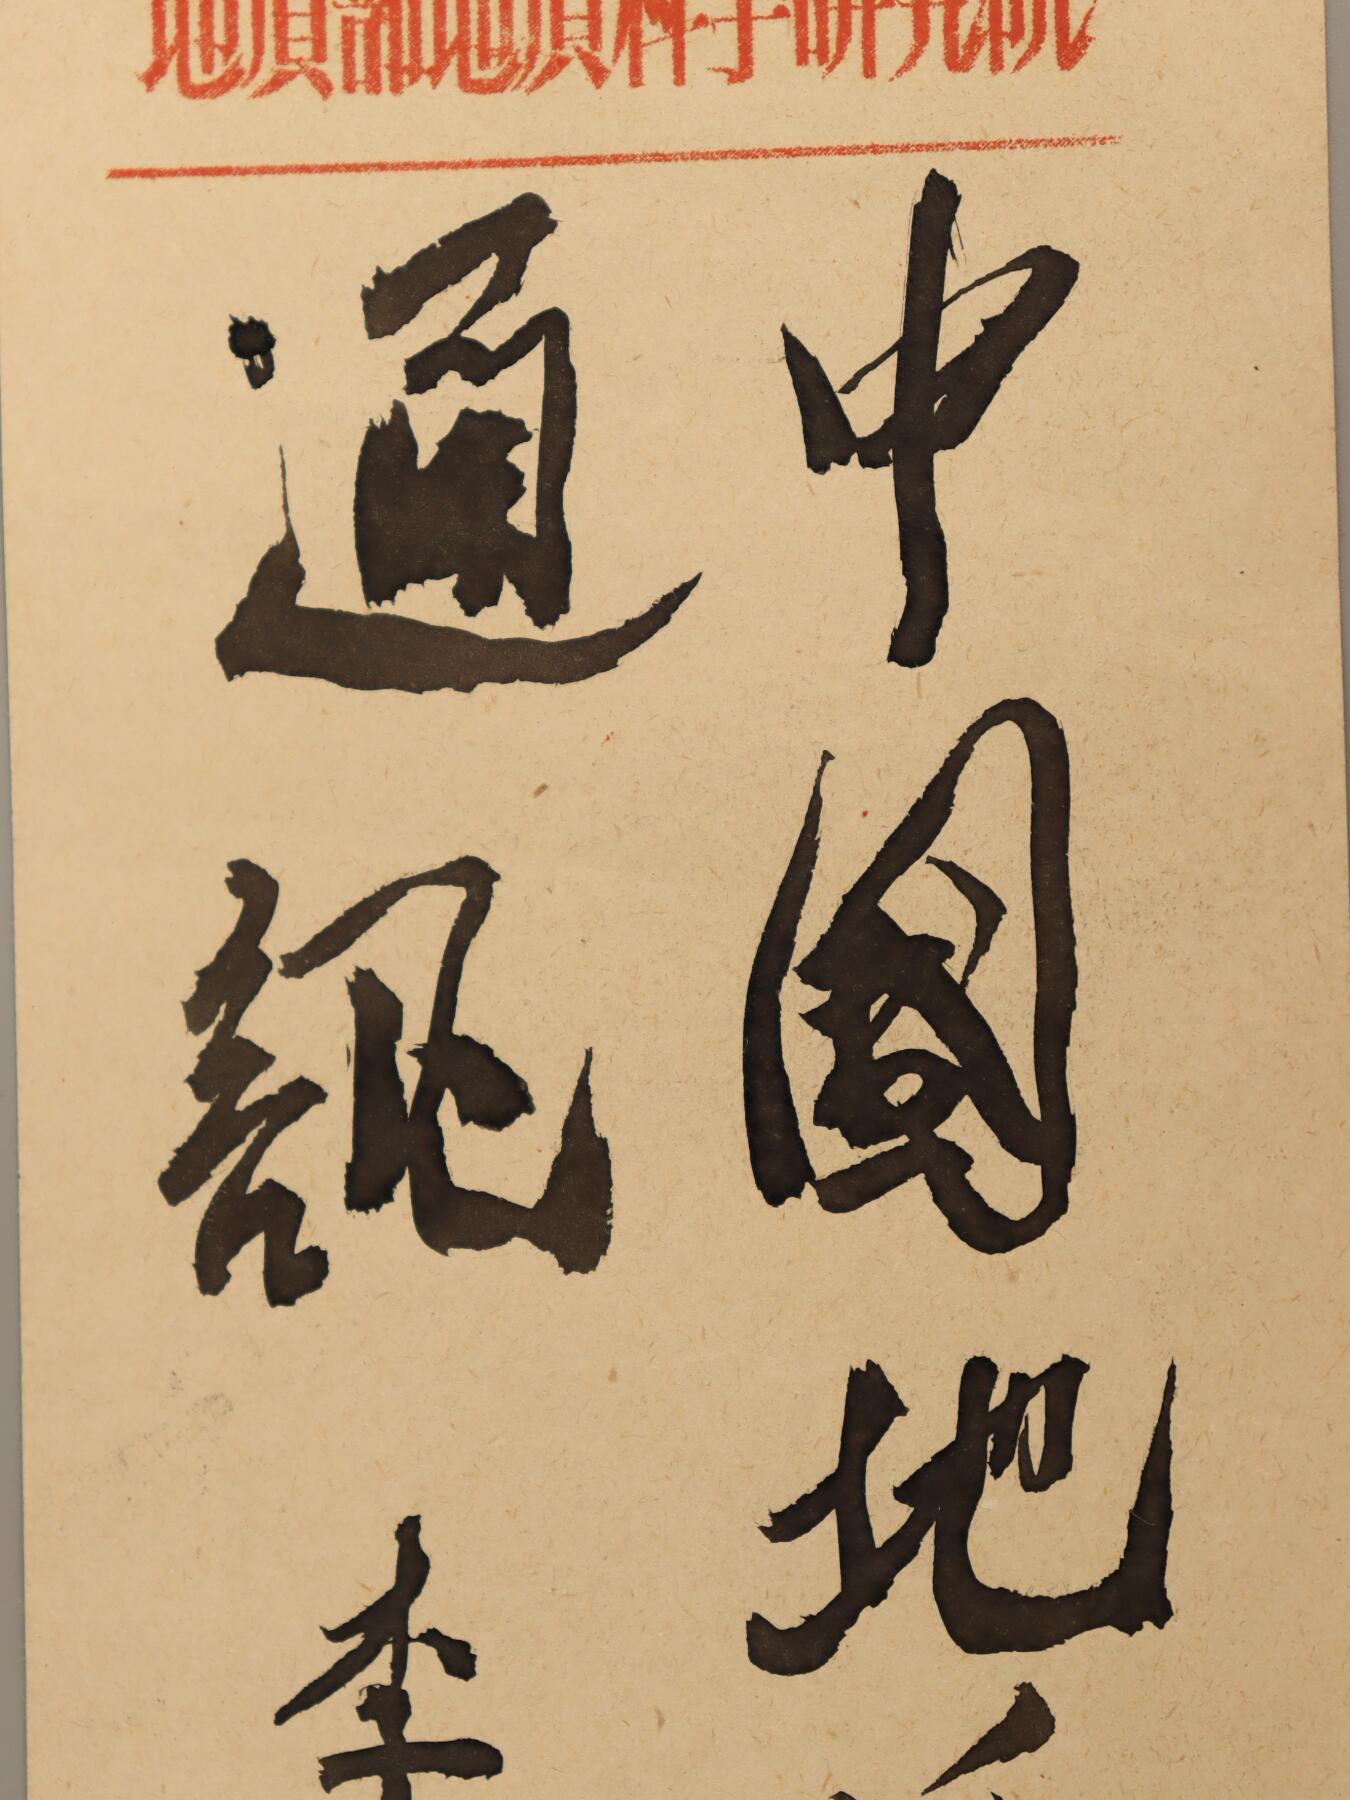 地質部地質科学研究院
中國地
通訊 李